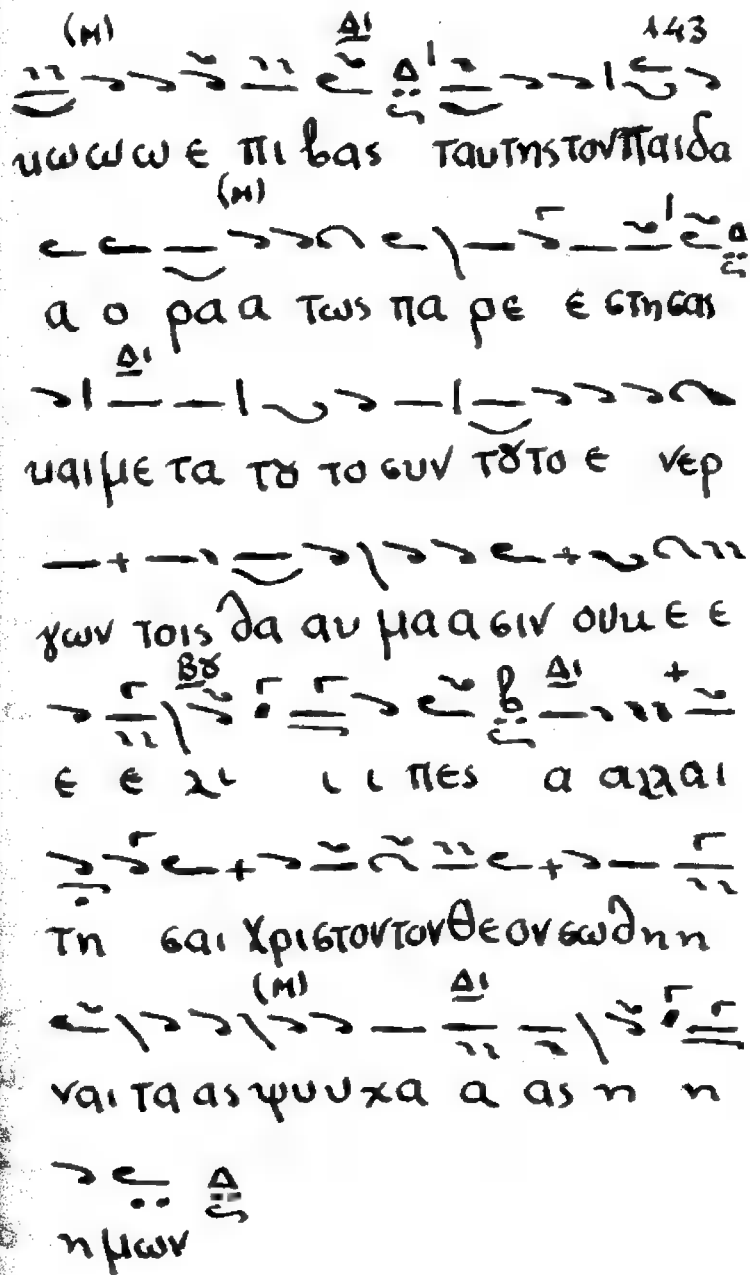 (м) Δι 143
κωωωε πιβας ταυτης τον παιδα
(м)
α ο ραα τως πα ρε ε στησας
Δι
και με τα τȣ το συν τȣτο ε νερ
γων τοις θα αυ μα α σιν ουκ ε ε
Βȣ Δι
ε ε λι ι ι πες α αλλαι
τη σαι Χριστον τον Θεον σωθη η
(м) Δι
ναι τα ας ψυυχα α ας η η
η μων